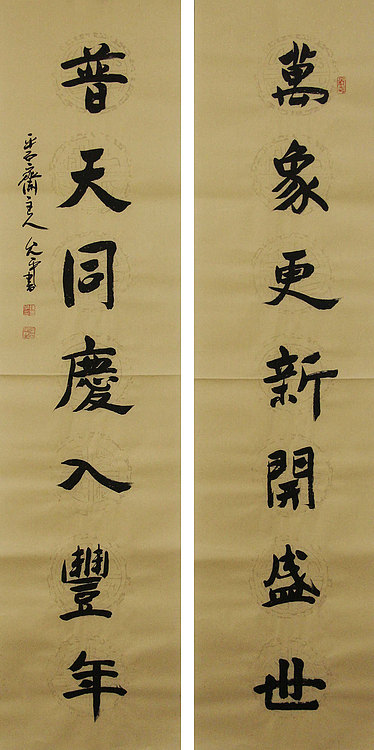 萬象更新開盛世
普天同慶入豐年
齋主人 允平書